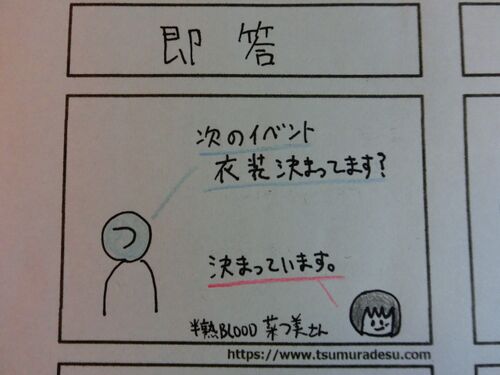 即答
次のイベント
衣装決まってます?
つ
決まっています。
半熟BLOOD 菜つ美さん
https://www.tsumuradesu.com